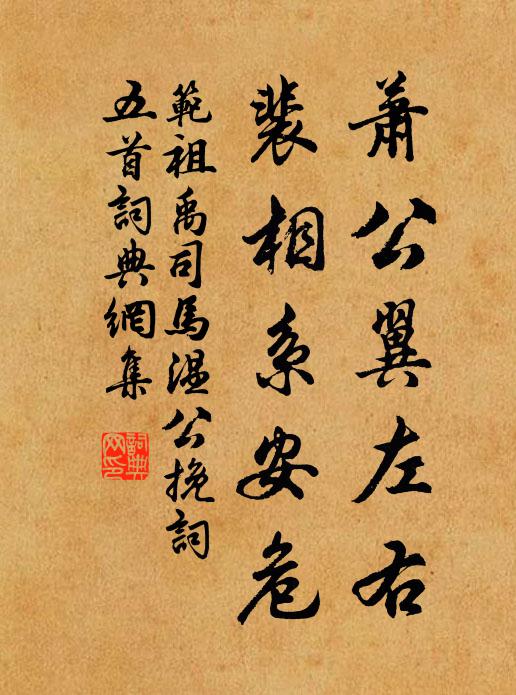 萧公翼左右
裴相系安危
範祖禹司馬溫公挽詞
五首詞典網集
詞典
网印